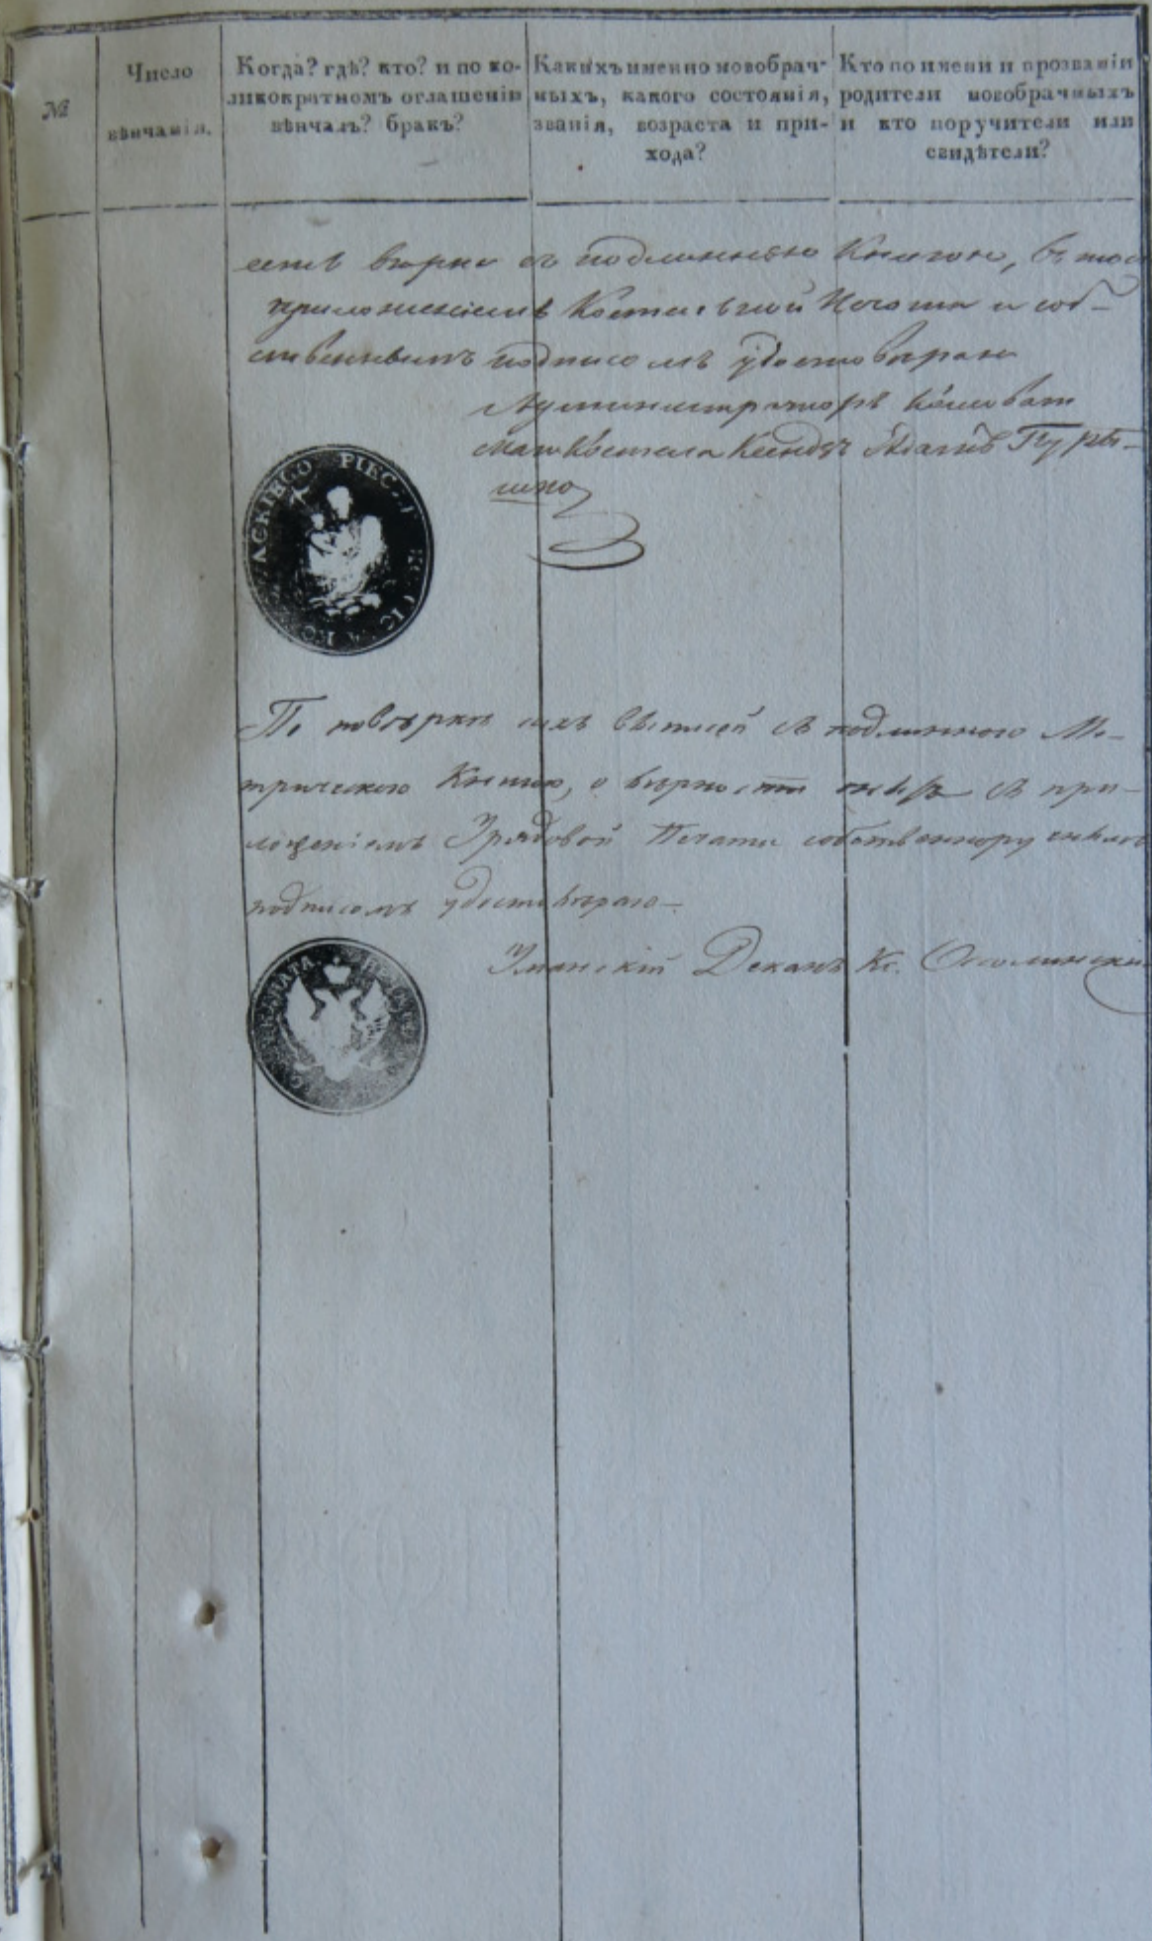 №
Число
вѣнчанія.
Когда? гдѣ? кто? и по ко-
ликократномъ оглашеніи
вѣнчалъ? бракъ?
Какихъ именно новобрач-
ныхъ, какого состоянія,
званія, возраста и при-
хода?
Кто по имени и прозванію
родители новобрачныхъ
и кто поручители или
свидѣтели?
вѣрна съ подлинною Книгою, въ том
приложеніемъ Костельной Печати и соб-
ственнымъ подписомъ удостовѣряю
Администраторъ
Костела Ксендзъ Адамъ
PIEC
По повѣркѣ сихъ выписей съ подлинною Ме-
трическою Книгою, о вѣрности оныхъ съ при-
ложеніемъ Урядовой Печати собственноручнымъ
подписомъ удостовѣряю—
Уманскій Деканъ Кс.